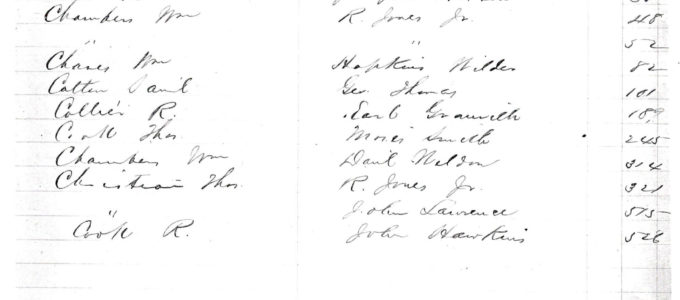 Chambers Wm R. Jones Jr. 48
" " 52
Chaves Wm Hopkins Wilder 82
Cotten Dan'l Geo Thomas 101
Collier R. Earl Granville 189
Cook Thos Moses Smith 245
Chambers Wm Dan'l Weldon 314
Christian Thos. R. Jones Jr. 321
" John Lawrence 515
Cook R. John Hawkins 526